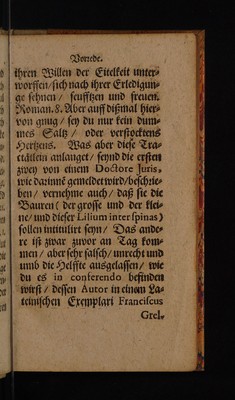 Vorrede.
ihren Willen der Eitelkeit unter-
worffen/sich nach ihrer Erledigun-
ge sehnen / seufftzen und freuen.
Roman. 8. Aber auff dißmal hier-
von gnug / sey du nur kein dum-
mes Saltz / oder verstocktens
Hertzens. Was aber diese Tra-
ctätlein anlanget/ seynd die ersten
zwey von einem Doctore Juris,
wie darinne gemeldet wird/beschrie-
ben/ vernehme auch/ daß sie die
Bauren ( der grosse und der klei-
ne/ und dieser Lilium inter spinas)
sollen intitulirt seyn/ Das ande-
re ist zwar zuvor an Tag kom-
men / aber sehr falsch/ unrecht und
umb die Helffte ausgelassen/ wie
du es in conferendo befinden
wirst/ dessen Autor in einem La-
teinischen Exemplari Franciscus
Grel-